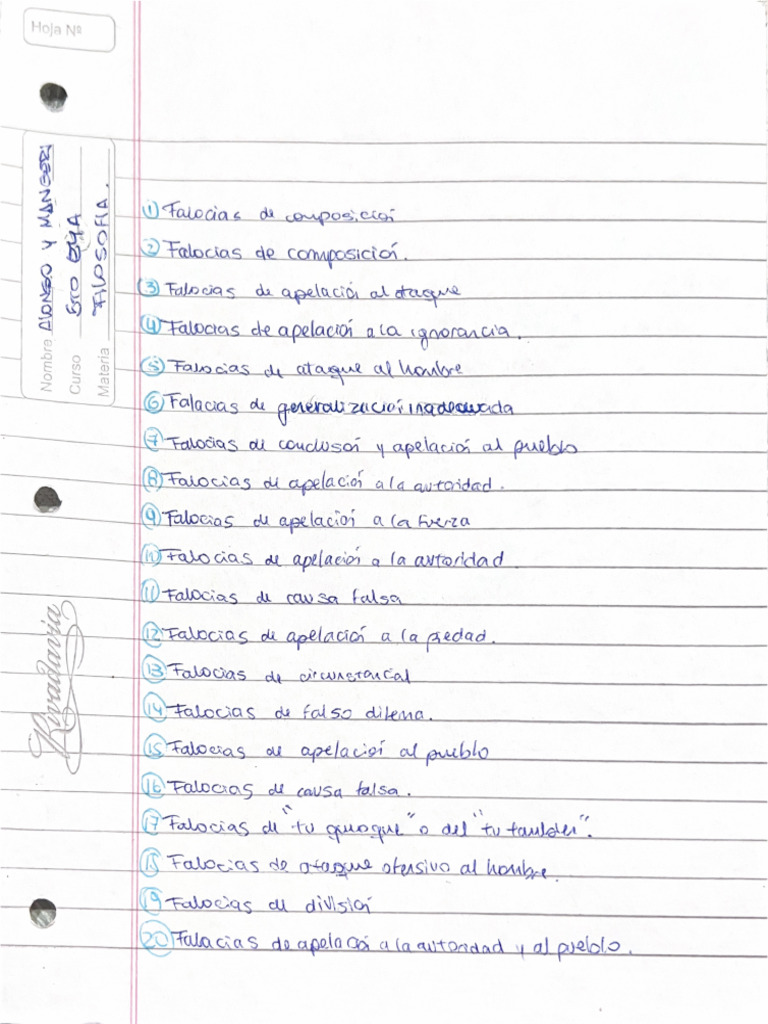 Hoja Nº
Nombre Alonso y Mangeri
Curso 5to EyA
Materia FILOSOFIA.
Rivadavia
1 Falocias de composicioń
2 Falocias de composicioń.
3 Falocias de apelacioń al ataque
4 Falocias de apelacioń a la ignorancia.
5 Falocias de ataque al hombre
6 Falacias de generalizacioń inadecuada
7 Falocias de conclusoń y apelacioń al pueblo
8 Falocias de apelacioń a la autoridad.
9 Falocias de apelacioń a la fuerza
10 Falocias de apelacioń a la autoridad
11 Falocias de causa falsa
12 Falocias de apelacioń a la piedad.
13 Falocias de circunstancial
14 Falocias de falso dilema.
15 Falocias de apelacioń al pueblo
16 Falocias de causa falsa.
17 Falocias de "tu quoque" o del "tu tambien".
18 Falocias de ataque ofensivo al hombre.
19 Falocias de divisioń
20 Falacias de apelacioń a la autoridad y al pueblo.